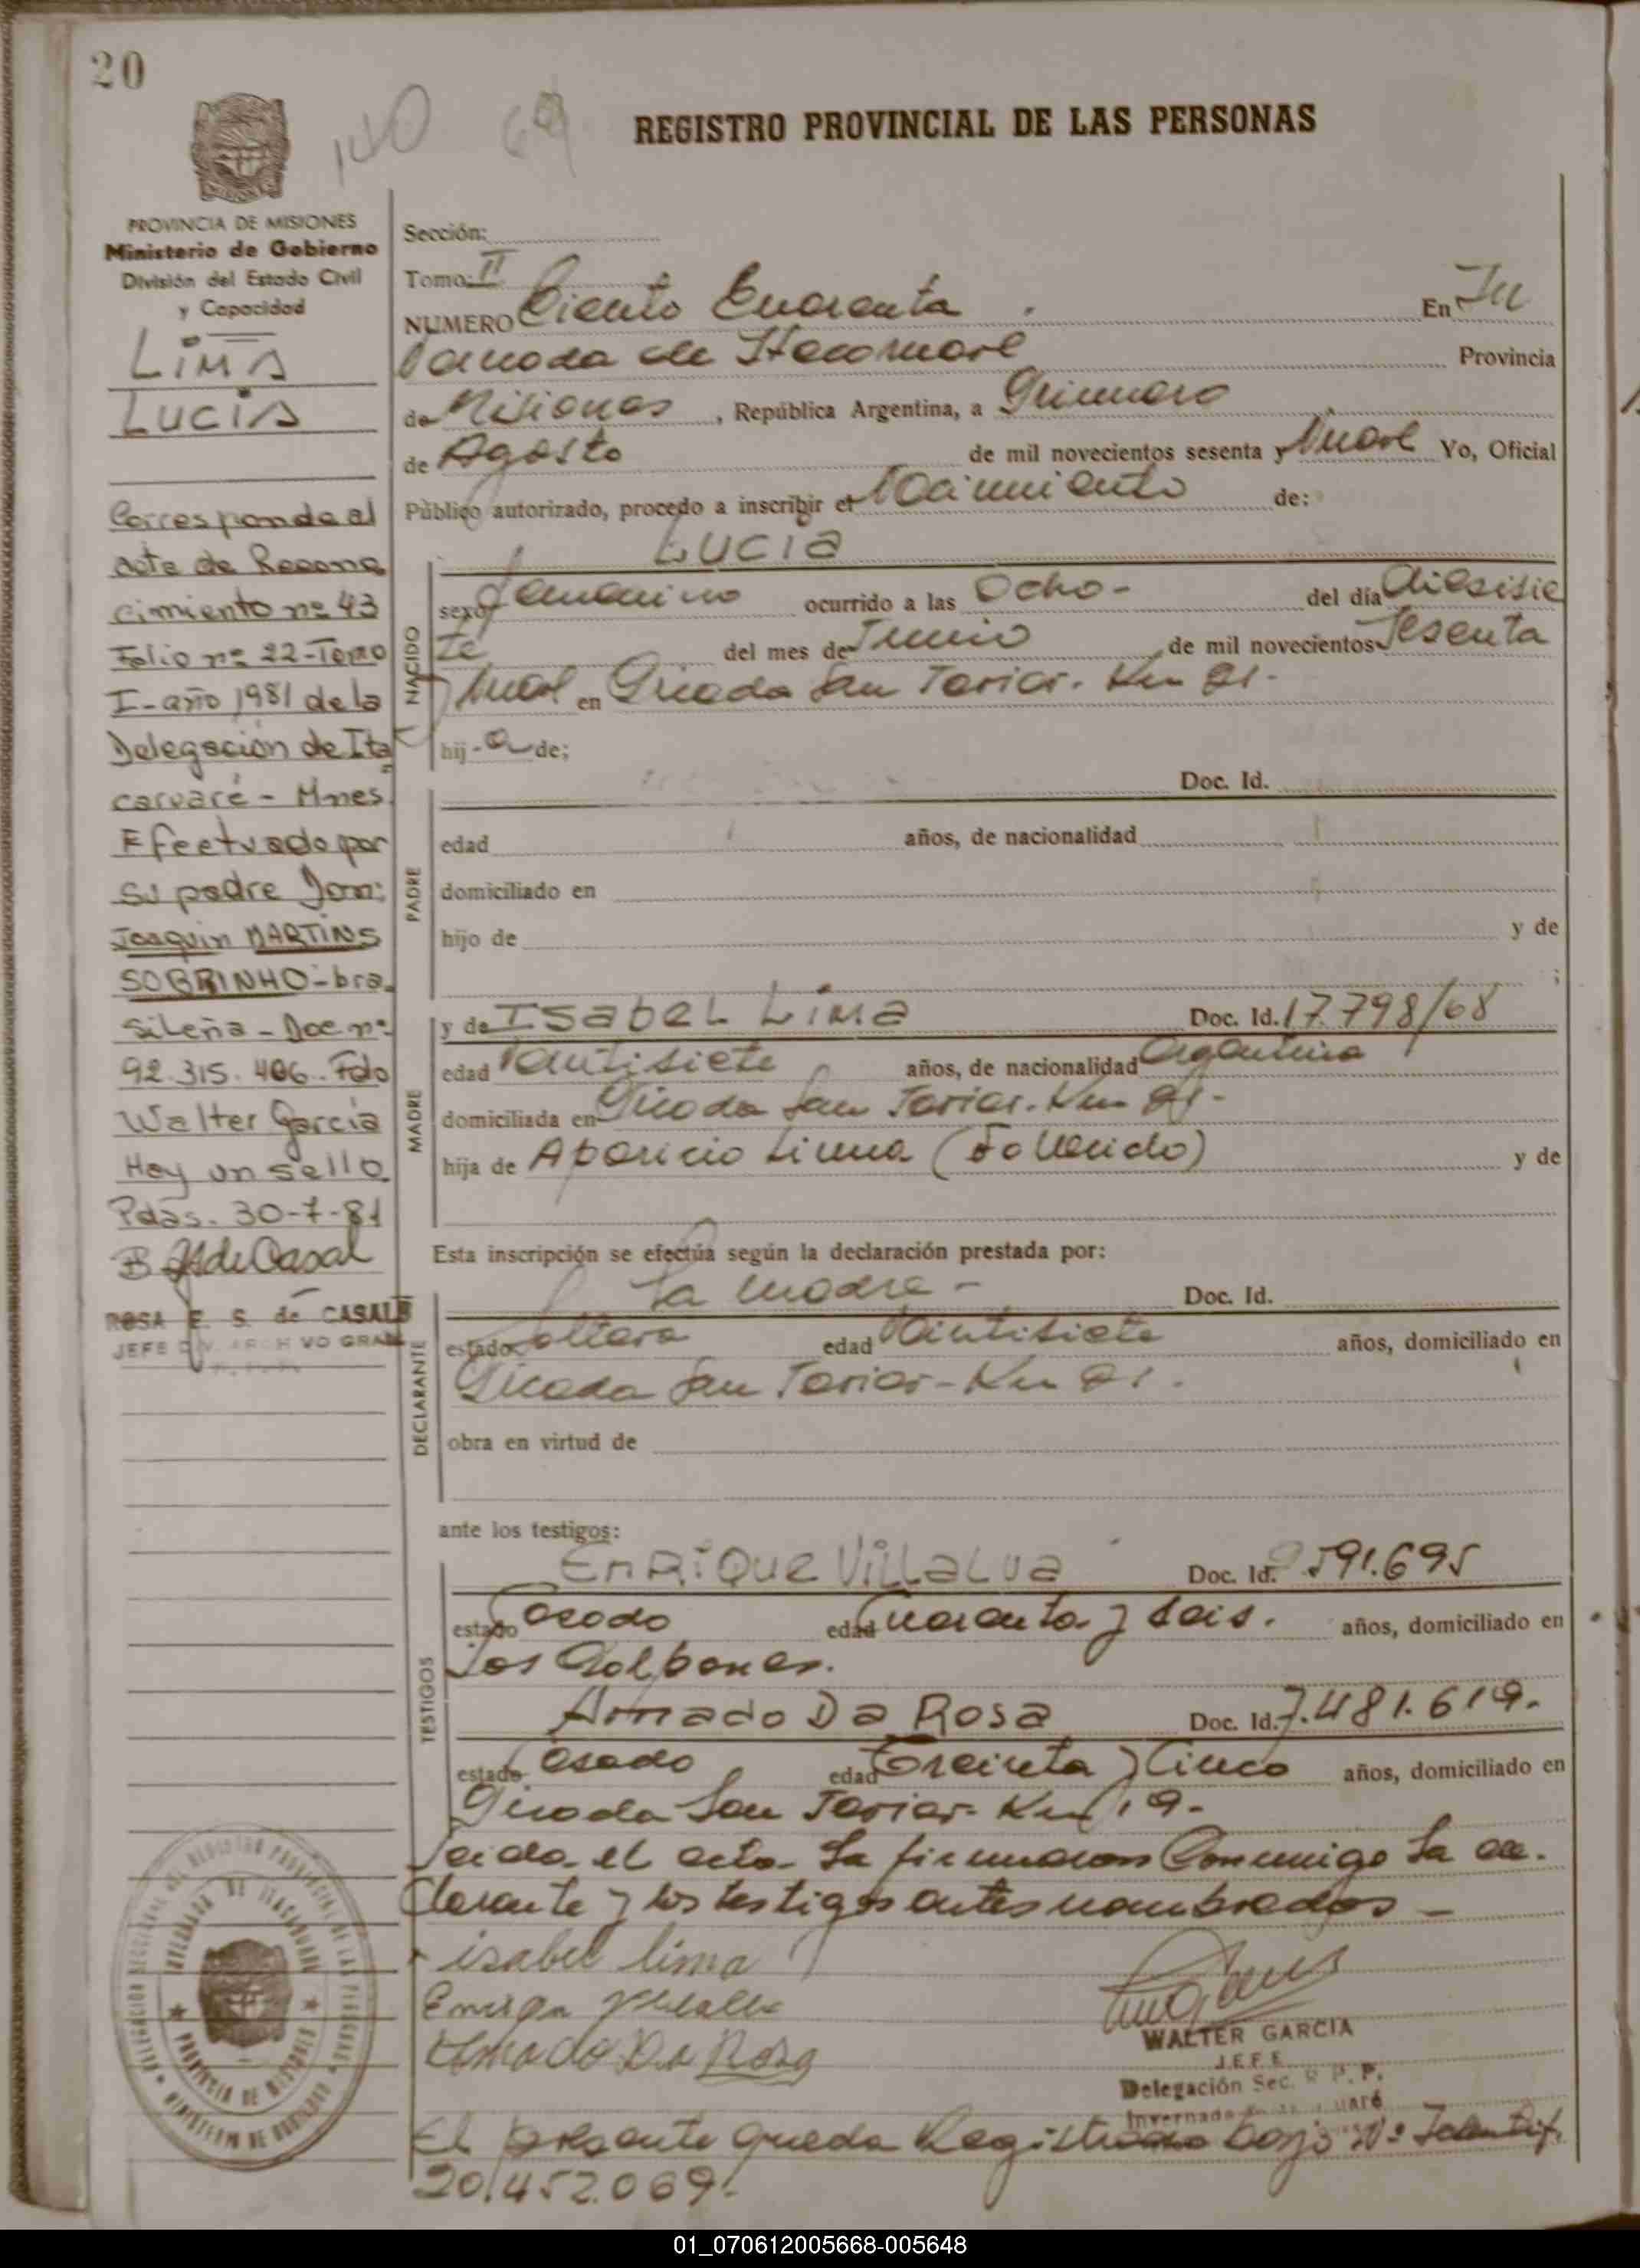 20
140 69
REGISTRO PROVINCIAL DE LAS PERSONAS
PROVINCIA DE MISIONES
Ministerio de Gobierno
División del Estado Civil
y Capacidad
LIMA
LUCIA
Corresponde al
acta de Recono
cimiento nº 43
Folio nº 22-Tomo
I-año 1981 de la
Delegación de Ita
caruaré - Mnes
Efectuado por
su padre Don:
Joaquin MARTINS
SOBRINHO-bra
sileña - Doc nº
92.315.406. Fdo
Walter García
Hay un sello
Pdas. 30-7-81
ROSA E. S. de CASALS
JEFE DIV. ARCHIVO GRAL
Sección:
Tomo: II
NUMERO Ciento Cuarenta . En In
vernada de Itacaruare Provincia
de Misiones, República Argentina, a Primero
de Agosto de mil novecientos sesenta y Nueve Yo, Oficial
Público autorizado, procedo a inscribir el Nacimiento de:
Lucia
NACIDO
sexo femenino ocurrido a las Ocho- del día diesisie
te del mes de Junio de mil novecientos sesenta
y Nueve en Picada San Javier. Km 21.
hij-a de;
Doc. Id.
PADRE
edad años, de nacionalidad
domiciliado en
hijo de y de
;
MADRE
y de Isabel Lima Doc. Id. 17.798/68
edad Ventisiete años, de nacionalidad Argentina
domiciliada en Picada San Javier. Km 21-
hija de Aparicio Lima (Fallecido) y de
Esta inscripción se efectúa según la declaración prestada por:
DECLARANTE
La madre - Doc. Id.
estado Soltera edad Ventisiete años, domiciliado en
Picada San Javier-Km 21.
obra en virtud de
ante los testigos:
TESTIGOS
Enrique Villalva Doc. Id. 2.591.695
estado Casado edad Cuarenta y seis. años, domiciliado en
Los Galpones.
Amado Da Rosa Doc. Id. 7.481.619.
estado Casado edad Treinta y Cinco años, domiciliado en
Picada San Javier. Km 19-
Leida el acta La firmaron Conmigo La de.
clarante y los testigos antes nombrados -
isabel lima
Amado Da Rosa
WALTER GARCIA
JEFE
Delegación Sec. R P. P.
Invernada de Itacaruaré
El presente queda Registrado bajo Nº Identif.
20.452.069.
DELEGACION SECCIONAL DEL REGISTRO PROVINCIAL DE LAS PERSONAS
INVERNADA DE ITACARUARE
PROVINCIA DE MISIONES
MINISTERIO DE GOBIERNO
01_070612005668-005648